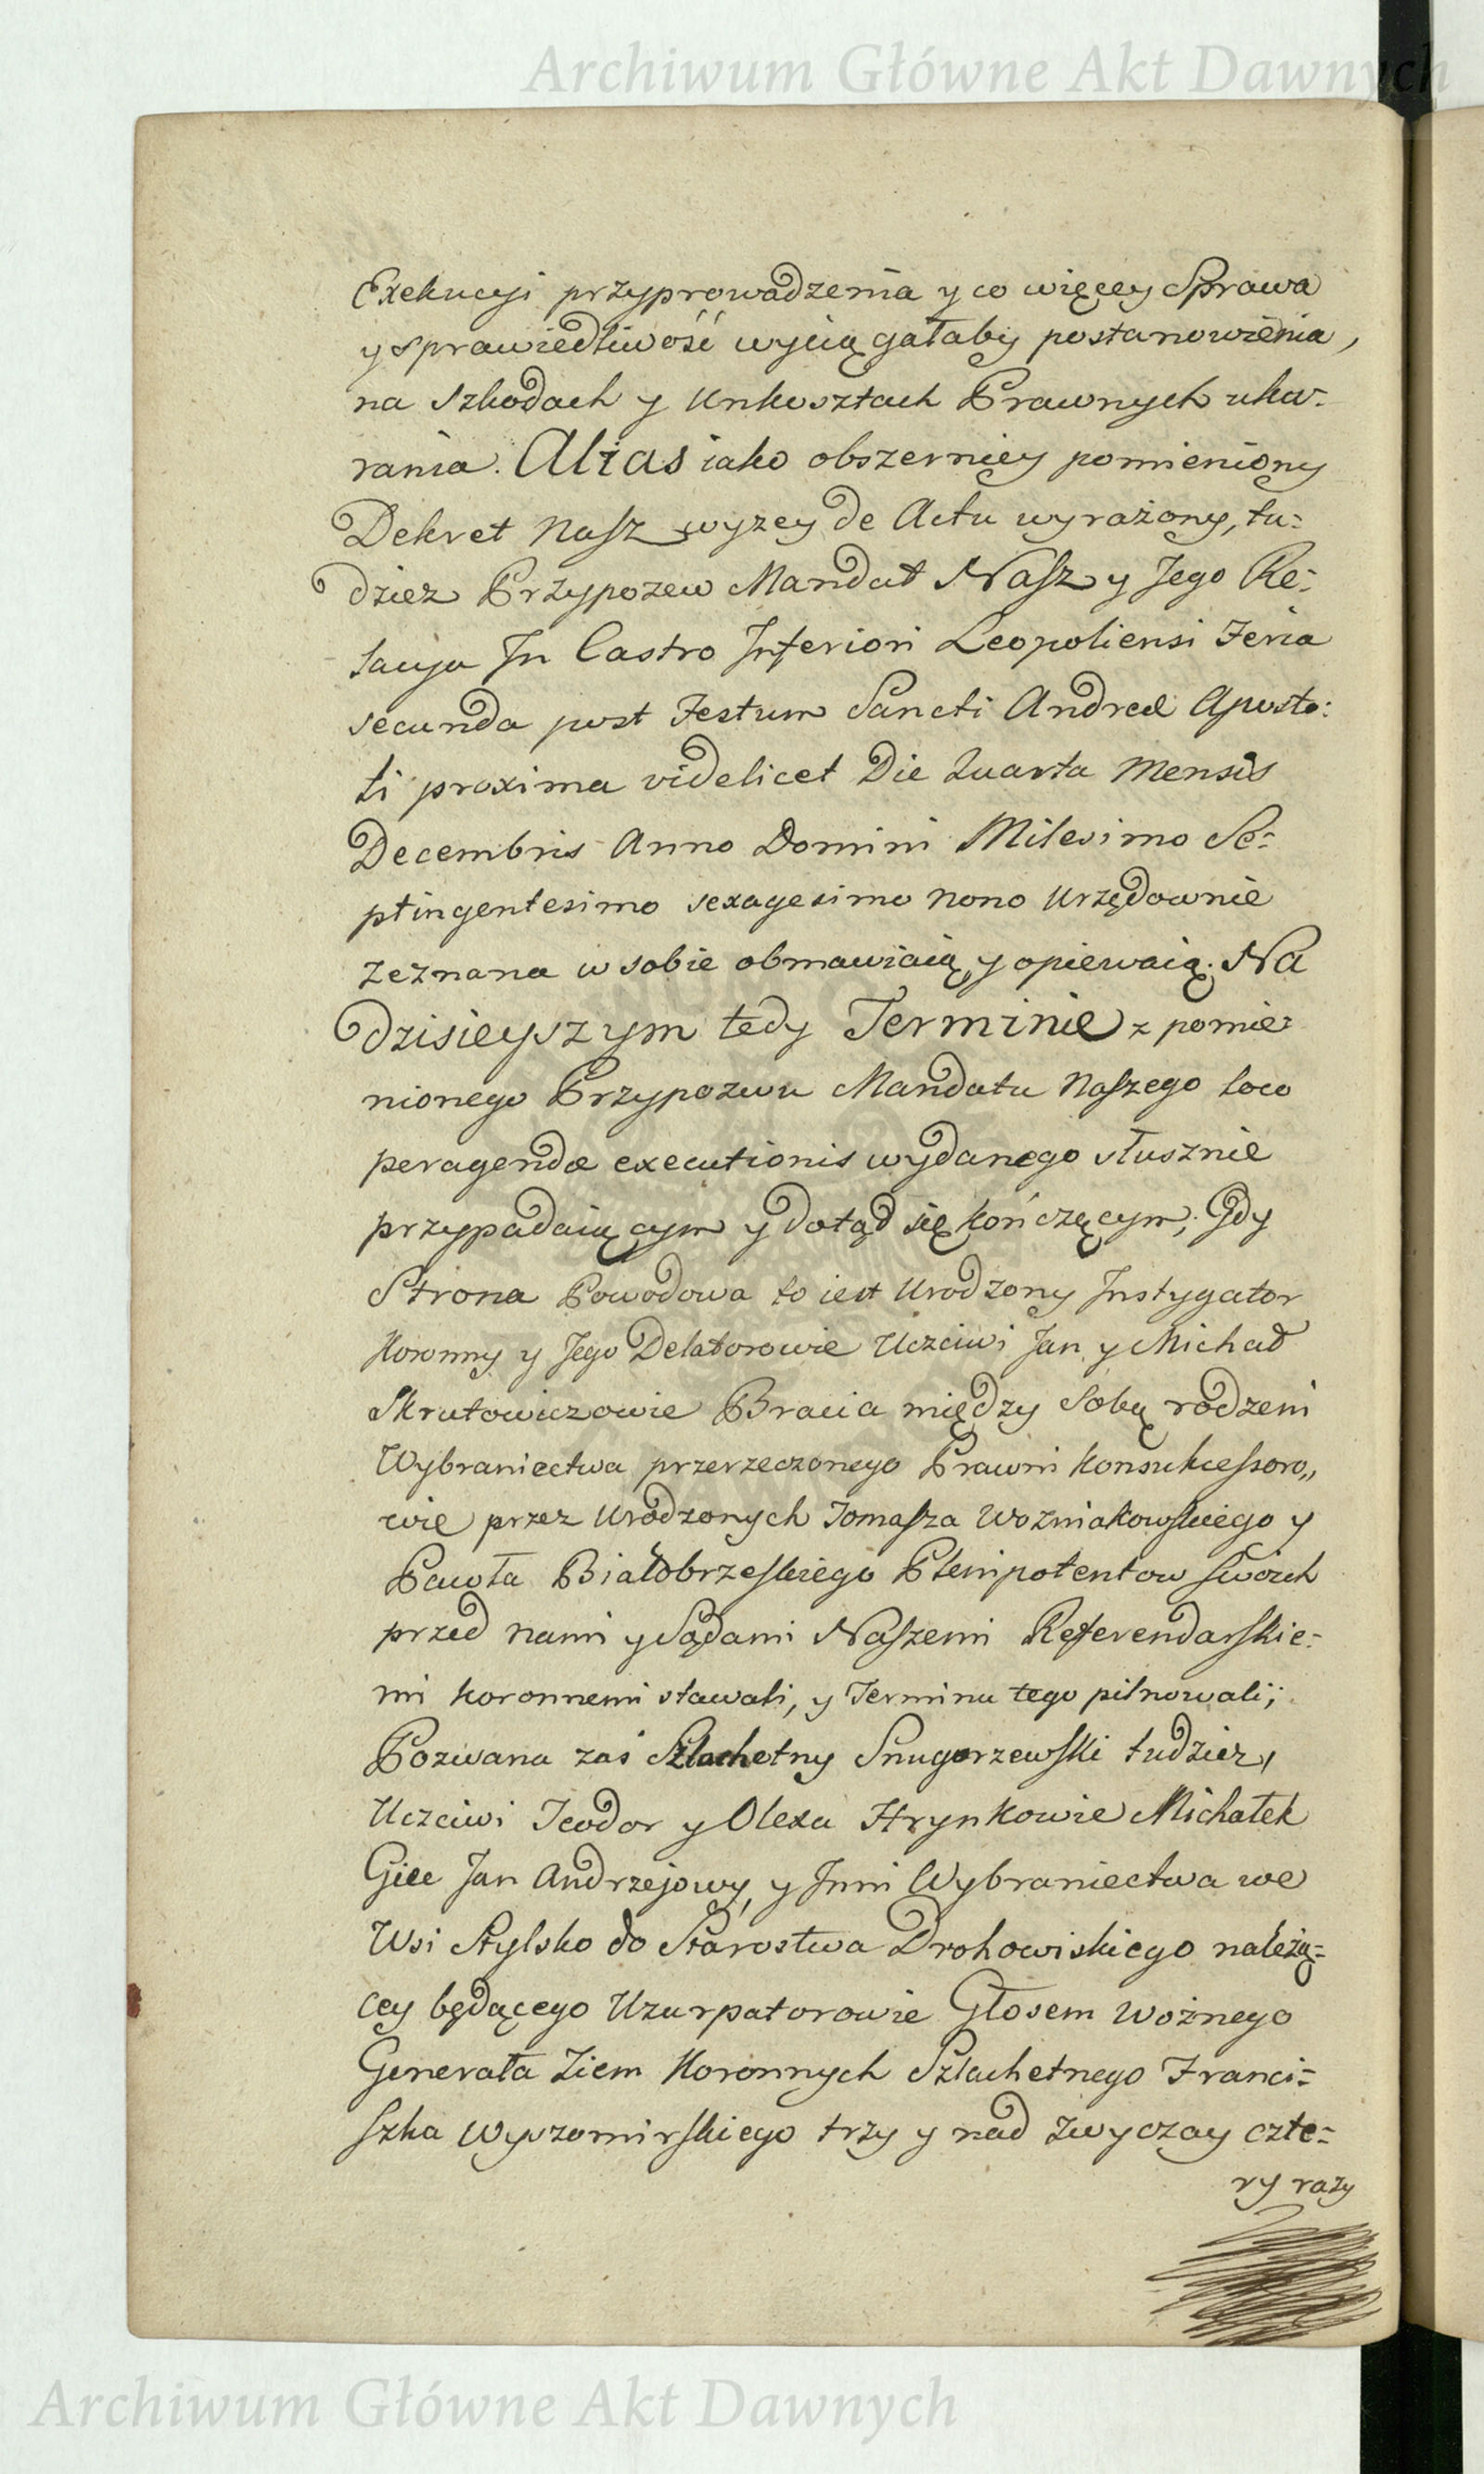 Archiwum Główne Akt Dawnych
Exekucyi przyprowadzenia y co więcey Sprawa
y sprawiedliwość wyciągałaby postanowienia,
na Szkodach y Unkosztach Prawnych uka-
rania. Alias iako obszerniey pomieniony
Dekret Nasz wyzey de Actu wyrażony, tu-
dziez Przypozew Mandat Nasz y Jego Re-
lacya In Castro Inferiori Leopoliensi Feria
secunda post Festum Sancti Andreæ Aposto:
li proxima videlicet Die Quarta Mensis
Decembris Anno Domini Milesimo Se-
ptingentesimo sexagesimo Nono Urzędownie
zeznana w sobie obmawiaią y opiewaią. Na
dzisieyszym tedy Terminie z pomie-
nionego Przypozwu Mandatu Naszego loco
peragendæ executionis wydanego słusznie
przypadaiącym y dotąd się kończącym; Gdy
Strona Powodowa to iest Urodzony Instygator
Koronny y Jego Delatorowie Uczciwi Jan y Michał
Skrutowiczowie Bracia między Sobą rodzeni
Wybraniectwa przerzeczonego Prawni Konsukcessoro„
wie przez Urodzonych Tomasza Wozniakowskiego y
Pawła Białobrzeskiego Plenipotentow swoich
przed Nami y Sądami Naszemi Referendarskie-
mi Koronnemi stawali, y Terminu tego pilnowali;
Pozwana zaś Szlachetny Snugorzewski tudziez,
Uczciwi Teodor y Olexa Hrynkowie Michałek
Giec Jan Andrzejowy, y Inni Wybraniectwa we
Wsi Stylsko do Starostwa Drohowiskiego należą-
cey będącego Uzurpatorowie Głosem Woźnego
Generała Ziem Koronnych Szlachetnego Franci-
szka Wyszomirskiego trzy y nad zwyczay czte-
ry razy
Archiwum Główne Akt Dawnych